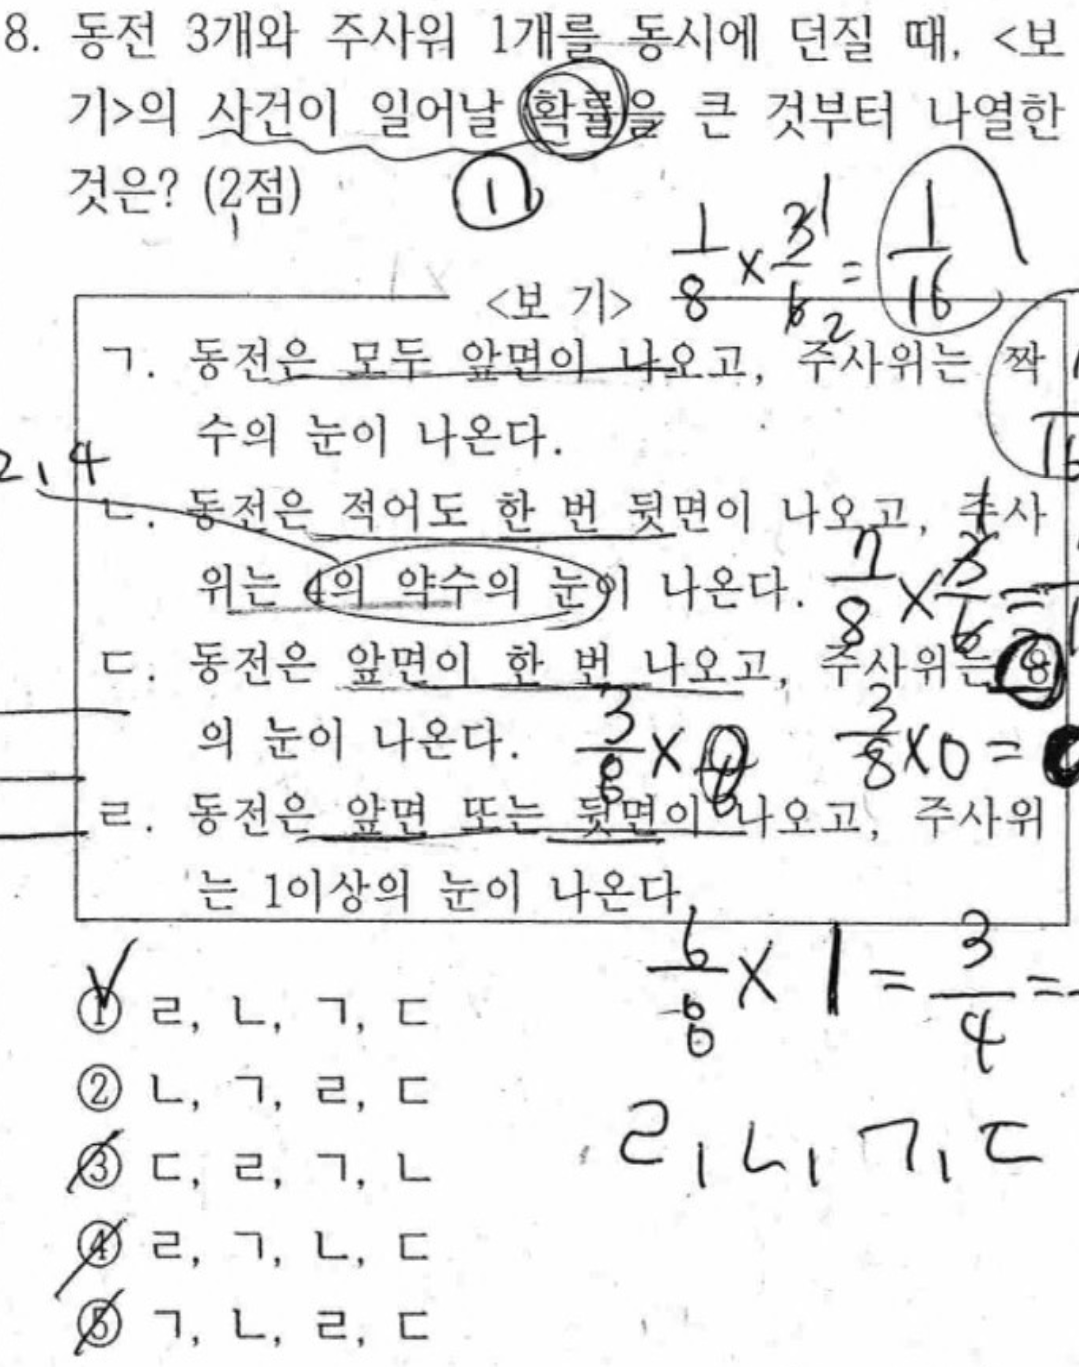 8. 동전 3개와 주사위 1개를 동시에 던질 때, <보
기>의 사건이 일어날 확률을 큰 것부터 나열한
것은? (2점)
1
1/8 × 3/6 = 1/16
<보 기>
ㄱ. 동전은 모두 앞면이 나오고, 주사위는 짝
수의 눈이 나온다.
2, 4
ㄴ. 동전은 적어도 한 번 뒷면이 나오고, 주사
위는 4의 약수의 눈이 나온다.
7/8 × 3/6 =
ㄷ. 동전은 앞면이 한 번 나오고, 주사위는 8
의 눈이 나온다.
3/8 × 3/8 × 0 = 0
ㄹ. 동전은 앞면 또는 뒷면이 나오고, 주사위
는 1이상의 눈이 나온다.
6/8 × 1 = 3/4 =
① ㄹ, ㄴ, ㄱ, ㄷ
② ㄴ, ㄱ, ㄹ, ㄷ
ㄹ, ㄴ, ㄱ, ㄷ
③ ㄷ, ㄹ, ㄱ, ㄴ
④ ㄹ, ㄱ, ㄴ, ㄷ
⑤ ㄱ, ㄴ, ㄹ, ㄷ